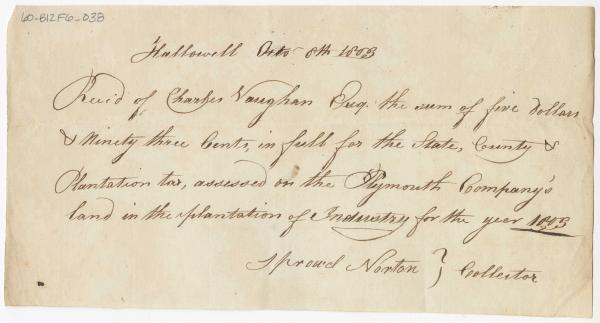 60-B12F6-038
Hallowell Octo 8th 1803
Rec'd of Charles Vaughan Esq. the sum of five dollars
& Ninety three Cents, in full for the State, County &
Plantation tax, assessed on the Plymouth Company's
land in the plantation of Industry for the year 1803
Sprowd Norton } Collector